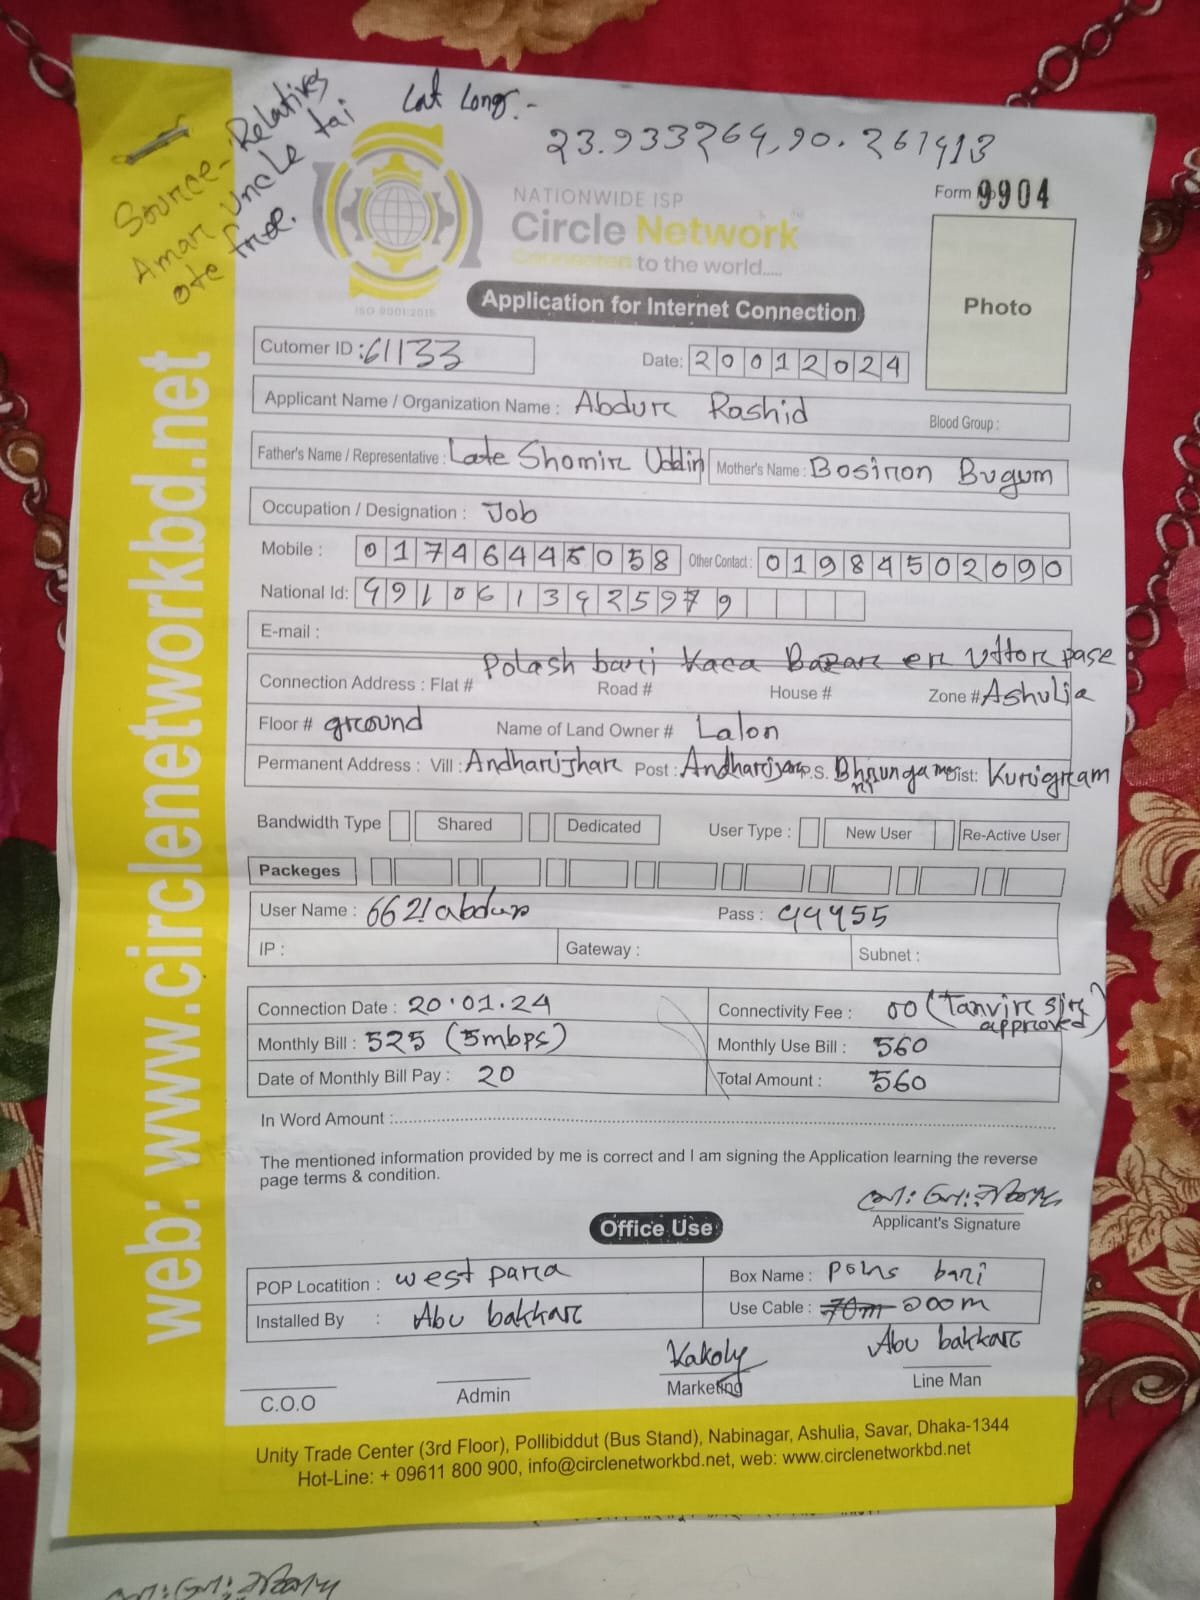 Lat Long -
23.933264,90.261413
Source- Relatives
Aman Uncle tai
ote free.
NATIONWIDE ISP
Circle Network
Connected to the world.....
ISO 9001:2015
Form 9904
Application for Internet Connection
Photo
Cutomer ID : 61133
Date: 20012024
Applicant Name / Organization Name : Abdur Rashid
Blood Group :
Father's Name / Representative : Late Shomir Uddin Mother's Name : Bosiron Bugum
Occupation / Designation : Job
Mobile : 01746445058 Other Contact : 01984502090
National Id: 4910613925979
E-mail :
Polash bari Kaca Bazar er Uttor pase
Connection Address : Flat # Road # House # Zone # Ashulia
Floor # ground Name of Land Owner # Lalon
Permanent Address : Vill : Andharijhar Post : P.S. Dist: Kurigram
Bandwidth Type Shared Dedicated User Type : New User Re-Active User
Packeges
User Name : 6621abdur Pass : 44455
IP : Gateway : Subnet :
Connection Date : 20.01.24 Connectivity Fee : 00 (Tanvir sir approved)
Monthly Bill : 525 (5mbps) Monthly Use Bill : 560
Date of Monthly Bill Pay : 20 Total Amount : 560
In Word Amount :
The mentioned information provided by me is correct and I am signing the Application learning the reverse
page terms & condition.
Applicant's Signature
Office Use
POP Locatition : west para Box Name : bari
Installed By : Abu bakkar Use Cable : 70m 000m
Kakoly Abu bakkar
C.O.O Admin Marketing Line Man
Unity Trade Center (3rd Floor), Pollibiddut (Bus Stand), Nabinagar, Ashulia, Savar, Dhaka-1344
Hot-Line: + 09611 800 900, info@circlenetworkbd.net, web: www.circlenetworkbd.net
web: www.circlenetworkbd.net